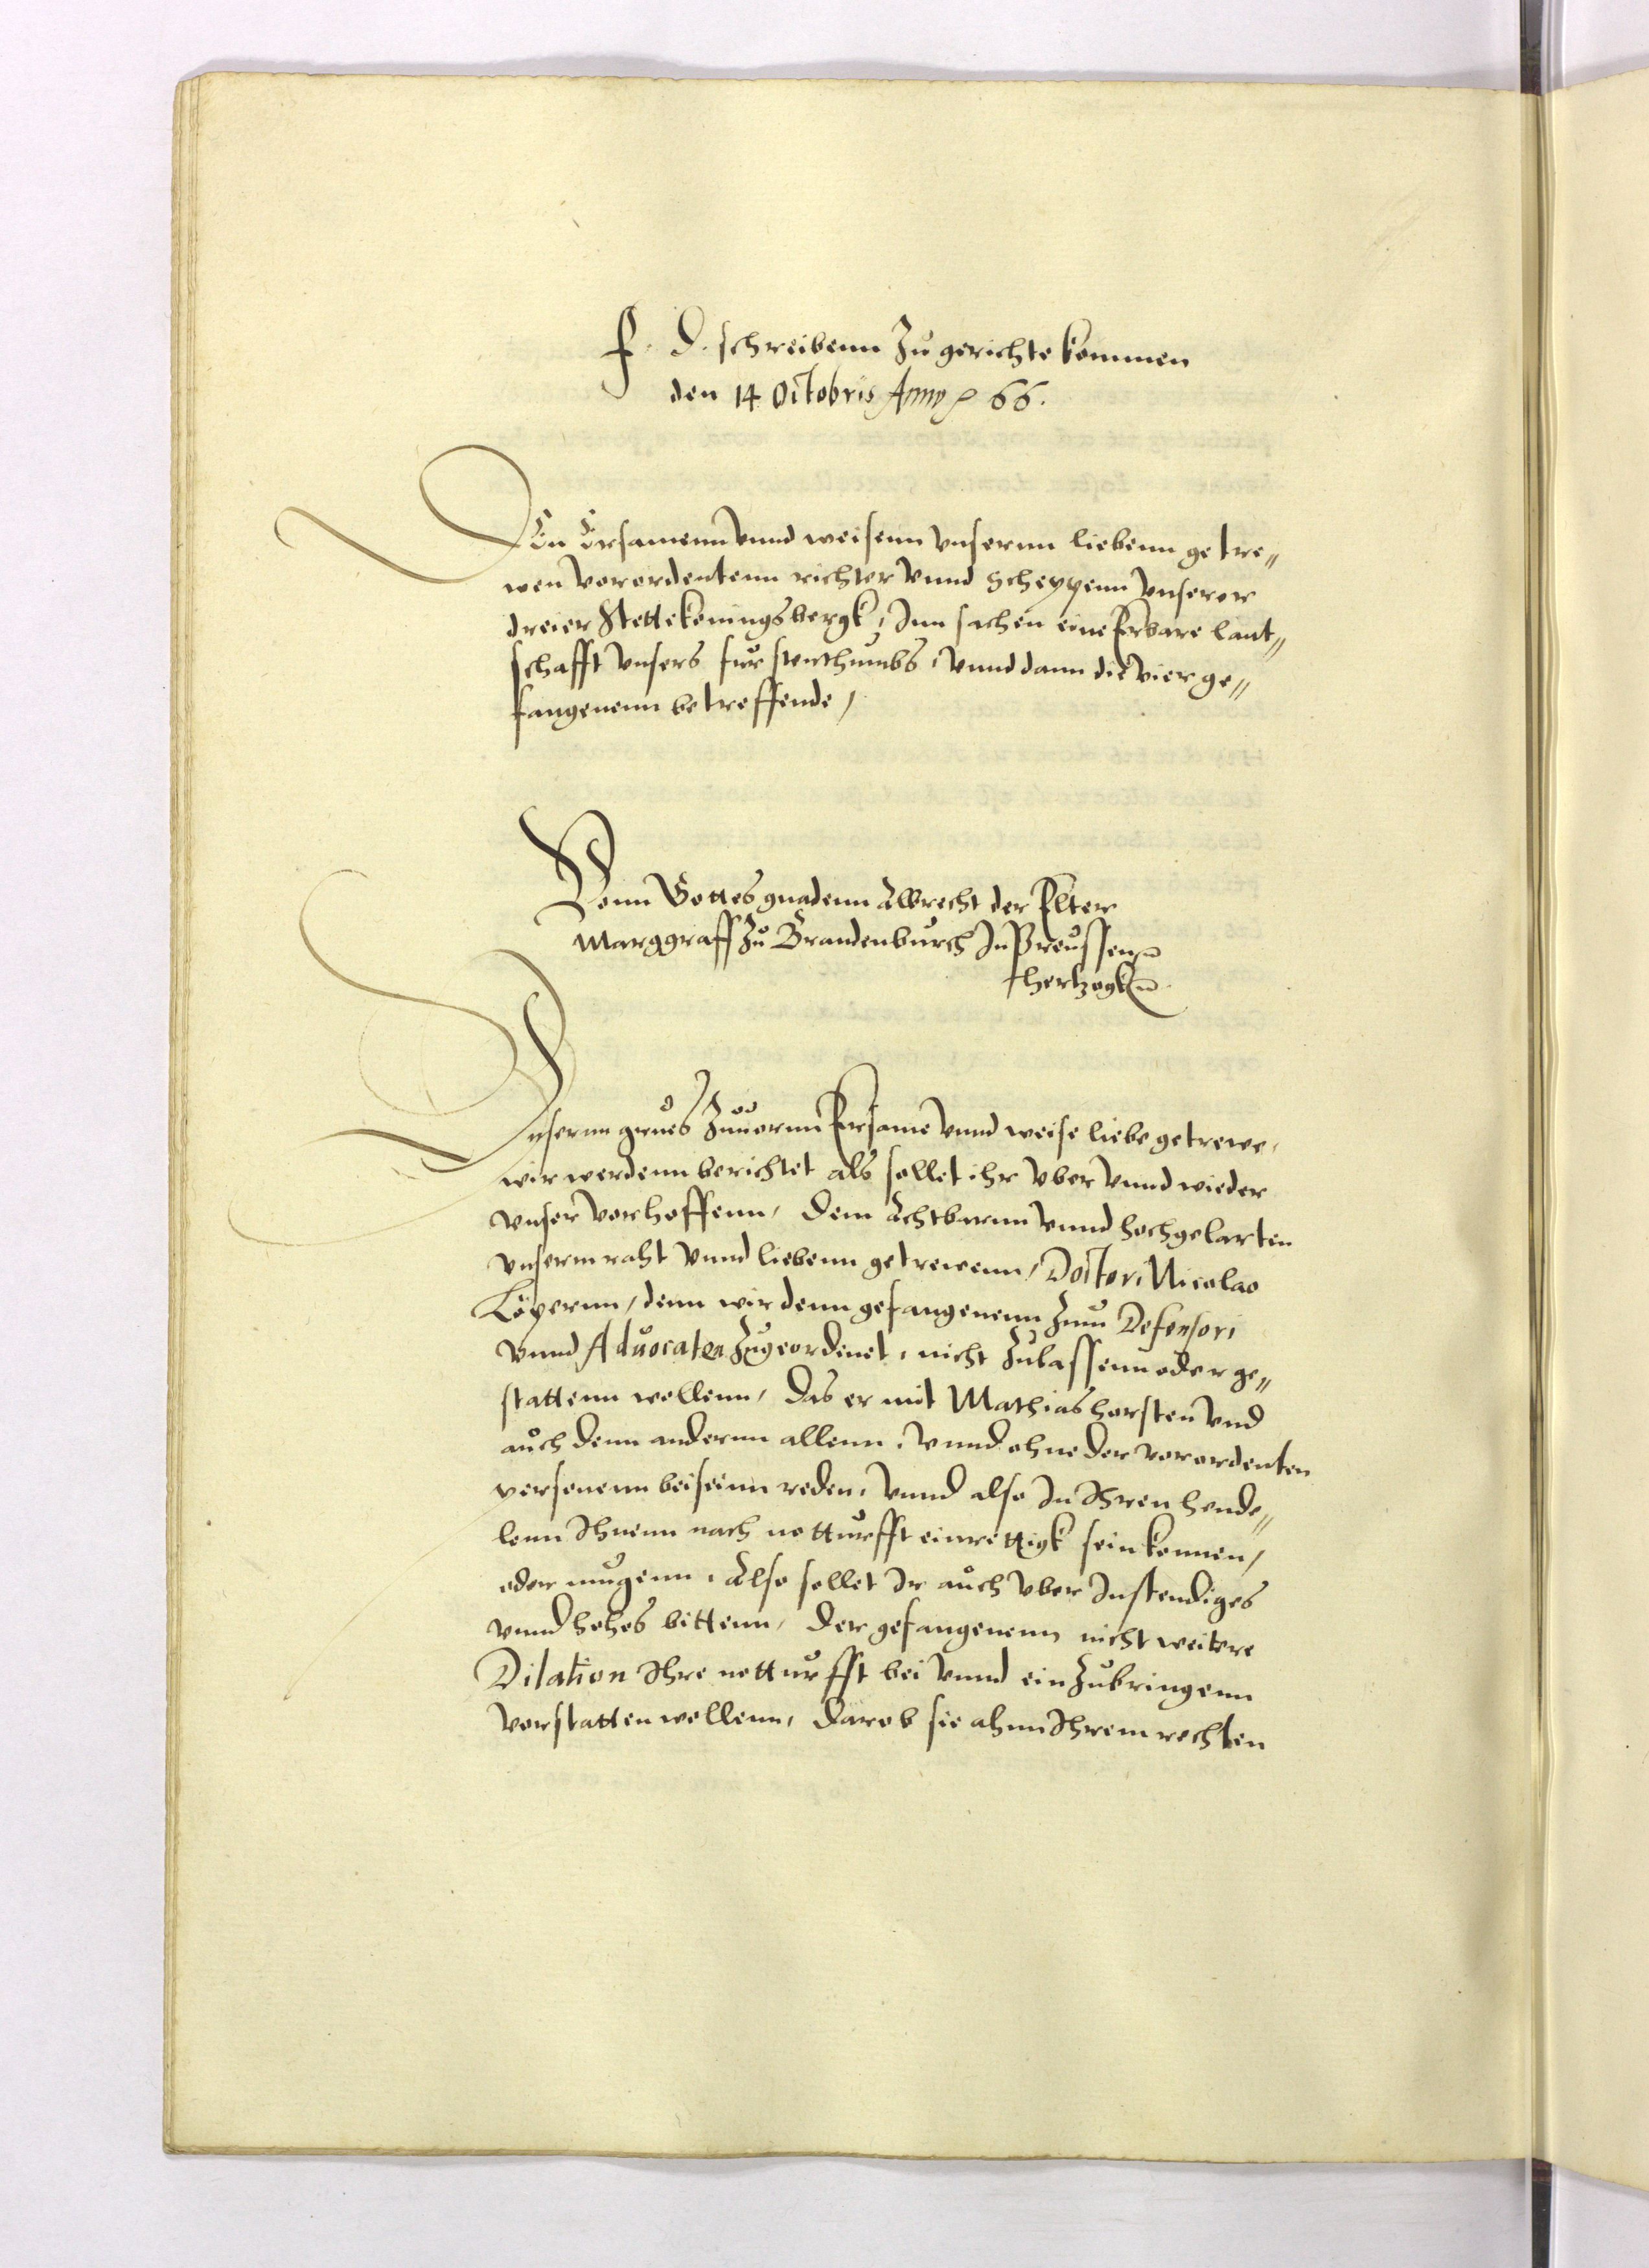 f. d. schreibenn Zu gerichte kommen
den 14 Octobris Anno 66.
Den Ersamenn vnnd weisenn vnsernn liebenn getre¬
wen verordentenn richter vnnd Scheppenn vnserer
dreier Stette koningsbergk, Inn sachen eine Erbare lant¬
schafft vnsers furstenthumbs, vnnd dann die vier ge¬
fangenenn betreffende,
Vonn Gottes gnadenn Albrecht der Elter
Marggraff zu Brandenburch In Preussenn
hertzogk
Vnsernn grues Zuuornn Ersame vnnd weise liebe getrewe,
wir werdenn berichtet als sollet ihr vber vnnd wieder
vnser verhoffenn, dem Achtbarnn vnnd hochgelarten
vnserm raht vnnd liebenn getrewenn, Doctori Nicolao
denn wir denn gefangenenn Zum Defensori
vnnd Aduocaten Zugeordenet, nicht Zulassenn oder ge¬
stattenn wollenn, das er mit Mathias horsten vnd
auch denn andernn allenn, vnnd ohne der verordenten
personenn beiseinn reden, vnnd also In Ihren hende¬
lenn Ihnenn nach notturfft einrettigk sein konnen,
oder mugenn, Also sollet Ir auch vber Instendiges
vnnd hohes bittenn, der gefangenenn nicht weitere
Dilation Ihre notturfft bei vnnd ein Zubringenn
verstatten wollenn, darob sie ahnn Ihrem rechten